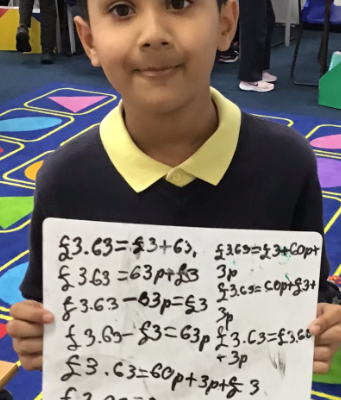 £3.63=£3+63,
£3.63=63p+£3
£3.63-63p=£3
£3.63-£3=63p
£3.63=60p+3p+£3
£3.63=£3+60p+
3p
£3.63=60p+£3+
3p
£3.63=£3.60
+3p